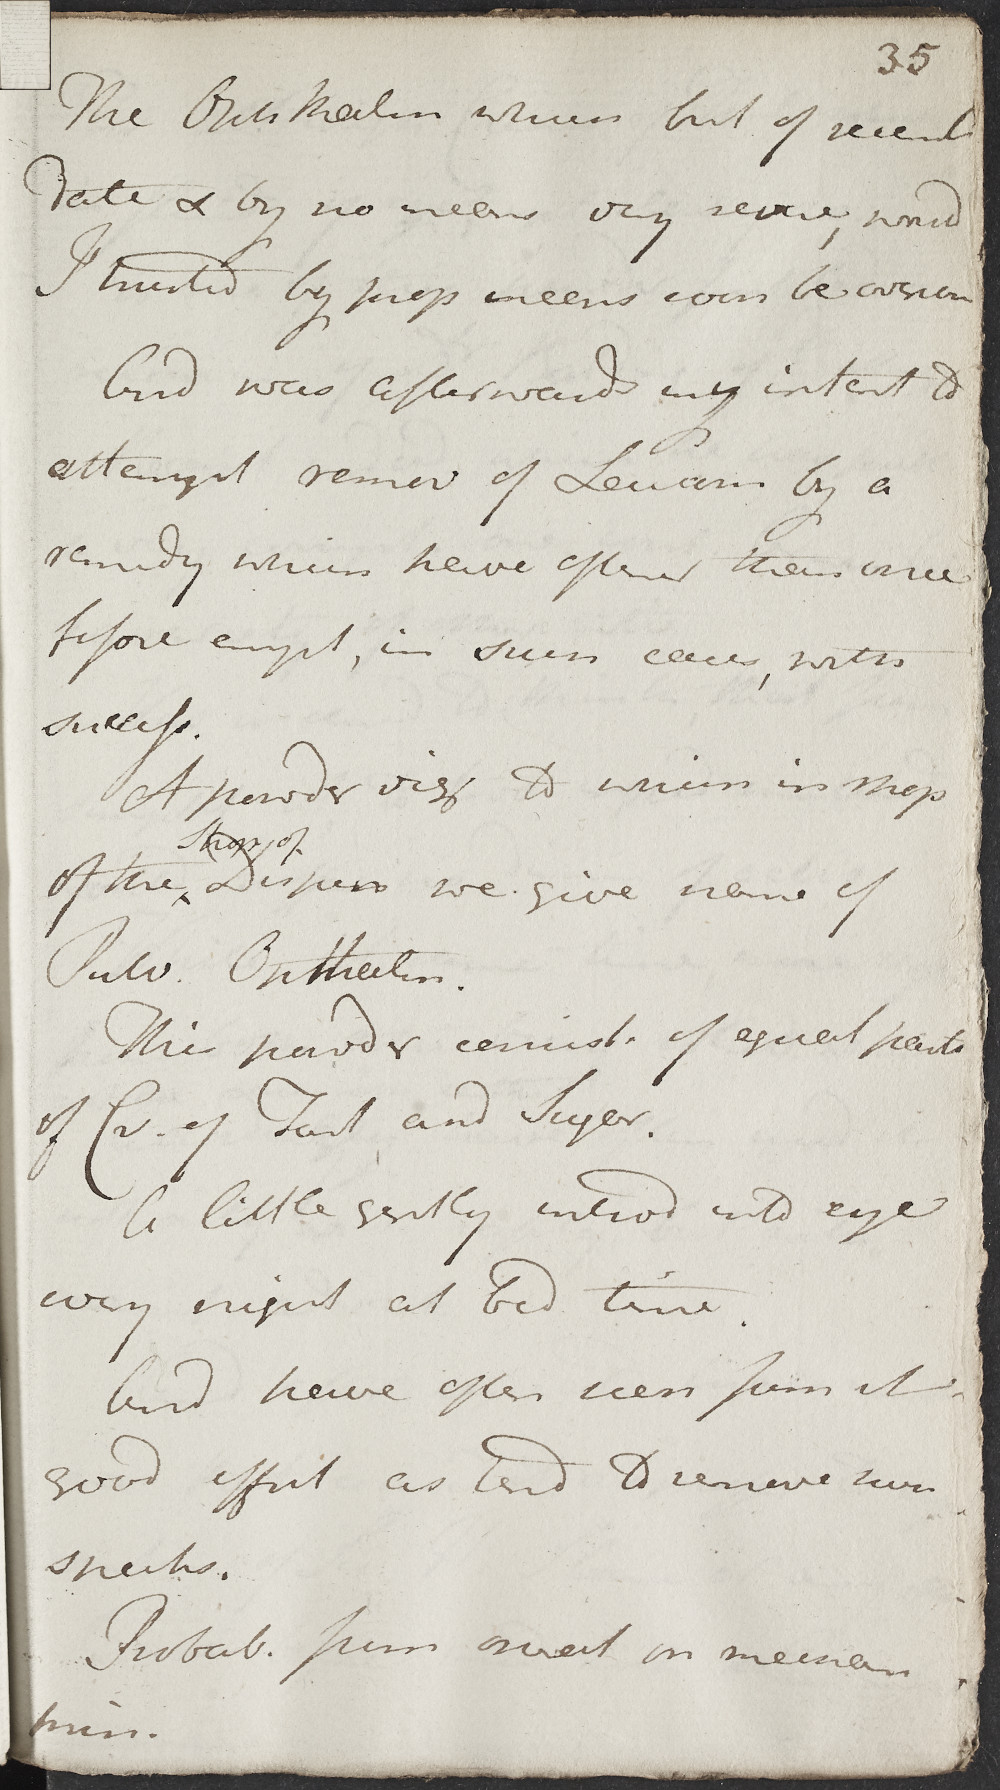 35
The Opthalm which but of recent
date & by no means very severe, would
I trusted by prop means soon be overcom
And was afterwards my intent to
attempt remov of Leucom by a
remedy which have oftener than once
before empl, in such cases, with
success.
A powder viz to which in shop
of the Shop of Dispens we give name of
Pulv. Opthalm.
This powder consist. of equal parts
of Cr. of Tart and Sugar.
A little gently introd into eye
every night at bed time.
And have often seen from it
good effect as tend to remove such
specks.
Probab. from operat on mechan
prin.